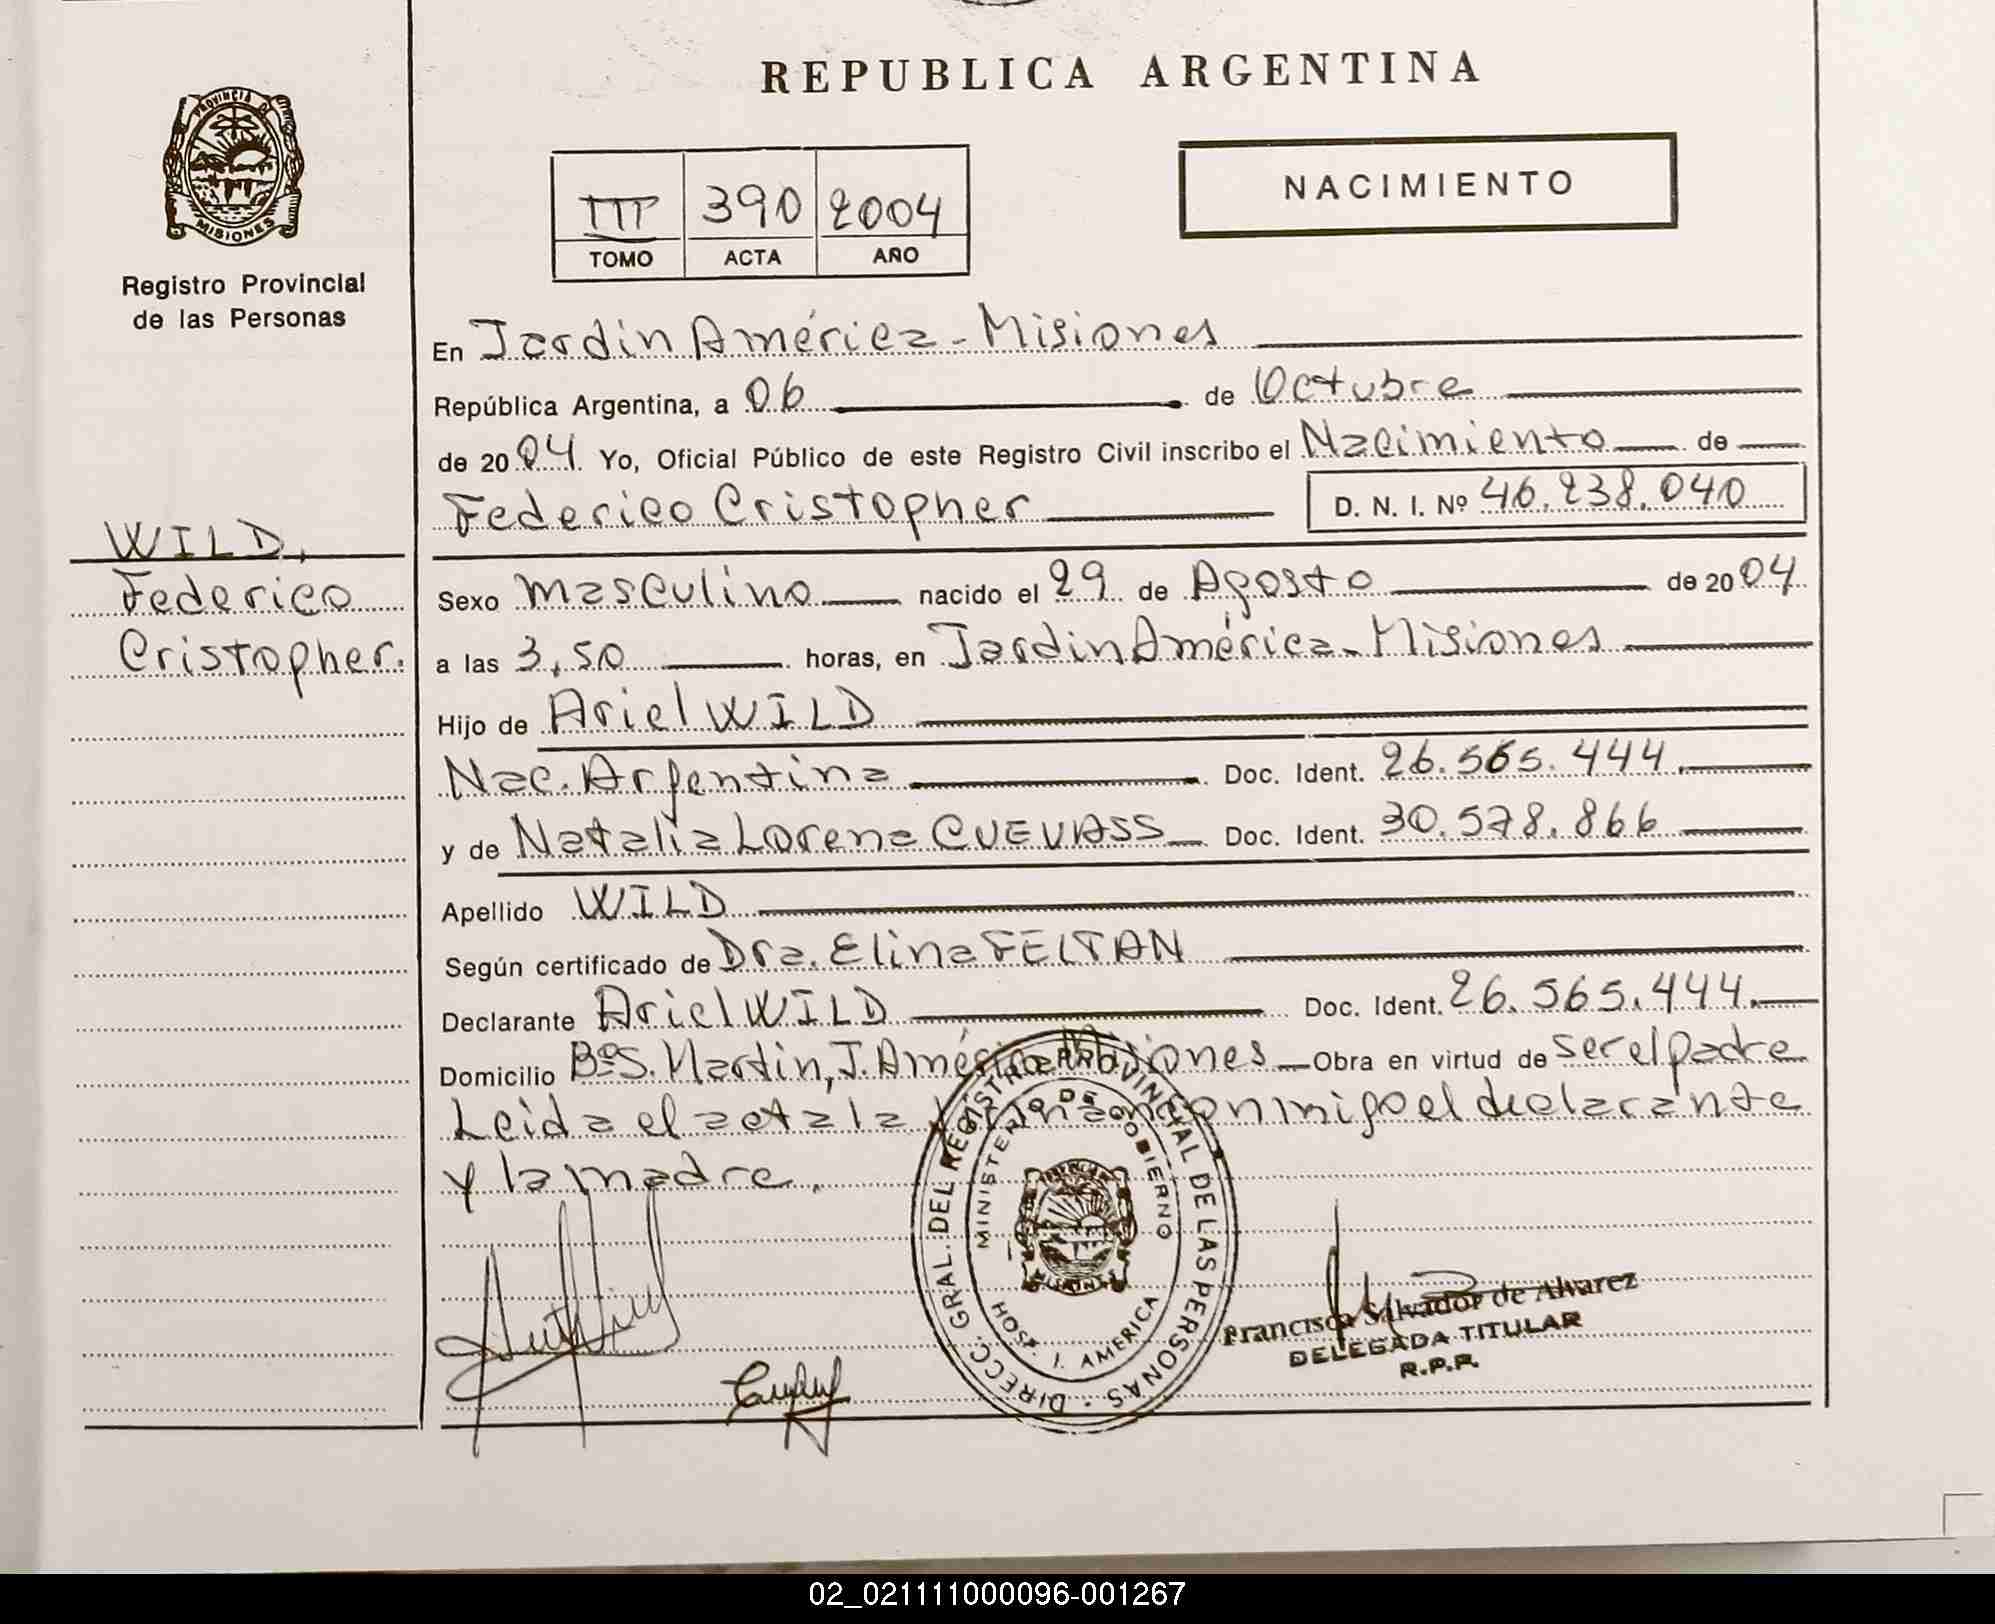 REPUBLICA ARGENTINA
PROVINCIA DE MISIONES
Registro Provincial
de las Personas
III 390 2004
TOMO ACTA AÑO
NACIMIENTO
En Jardin América - Misiones
República Argentina, a 06 de Octubre
de 2004 Yo, Oficial Público de este Registro Civil inscribo el Nacimiento de
Federico Cristopher D. N. I. Nº 46.238.040
WILD,
Federico
Cristopher.
Sexo masculino nacido el 29 de Agosto de 2004
a las 3,50 horas, en Jardin América - Misiones
Hijo de Ariel WILD
Nac. Argentina Doc. Ident. 26.565.444.
y de Natalia Lorena CUEVASS Doc. Ident. 30.578.866
Apellido WILD
Según certificado de Dra. Elina FELTAN
Declarante Ariel WILD Doc. Ident. 26.565.444.
Domicilio Bº S. Martin, J. América Misiones Obra en virtud de ser el padre
Leida el acta la firman conmigo el declarante
y la madre.
DIRECC. GRAL. DEL REGISTRO PROVINCIAL DE LAS PERSONAS
MINISTERIO DE GOBIERNO
HOSP. J. AMERICA
Francisca Salvador de Alvarez
DELEGADA TITULAR
R.P.P.
02_021111000096-001267